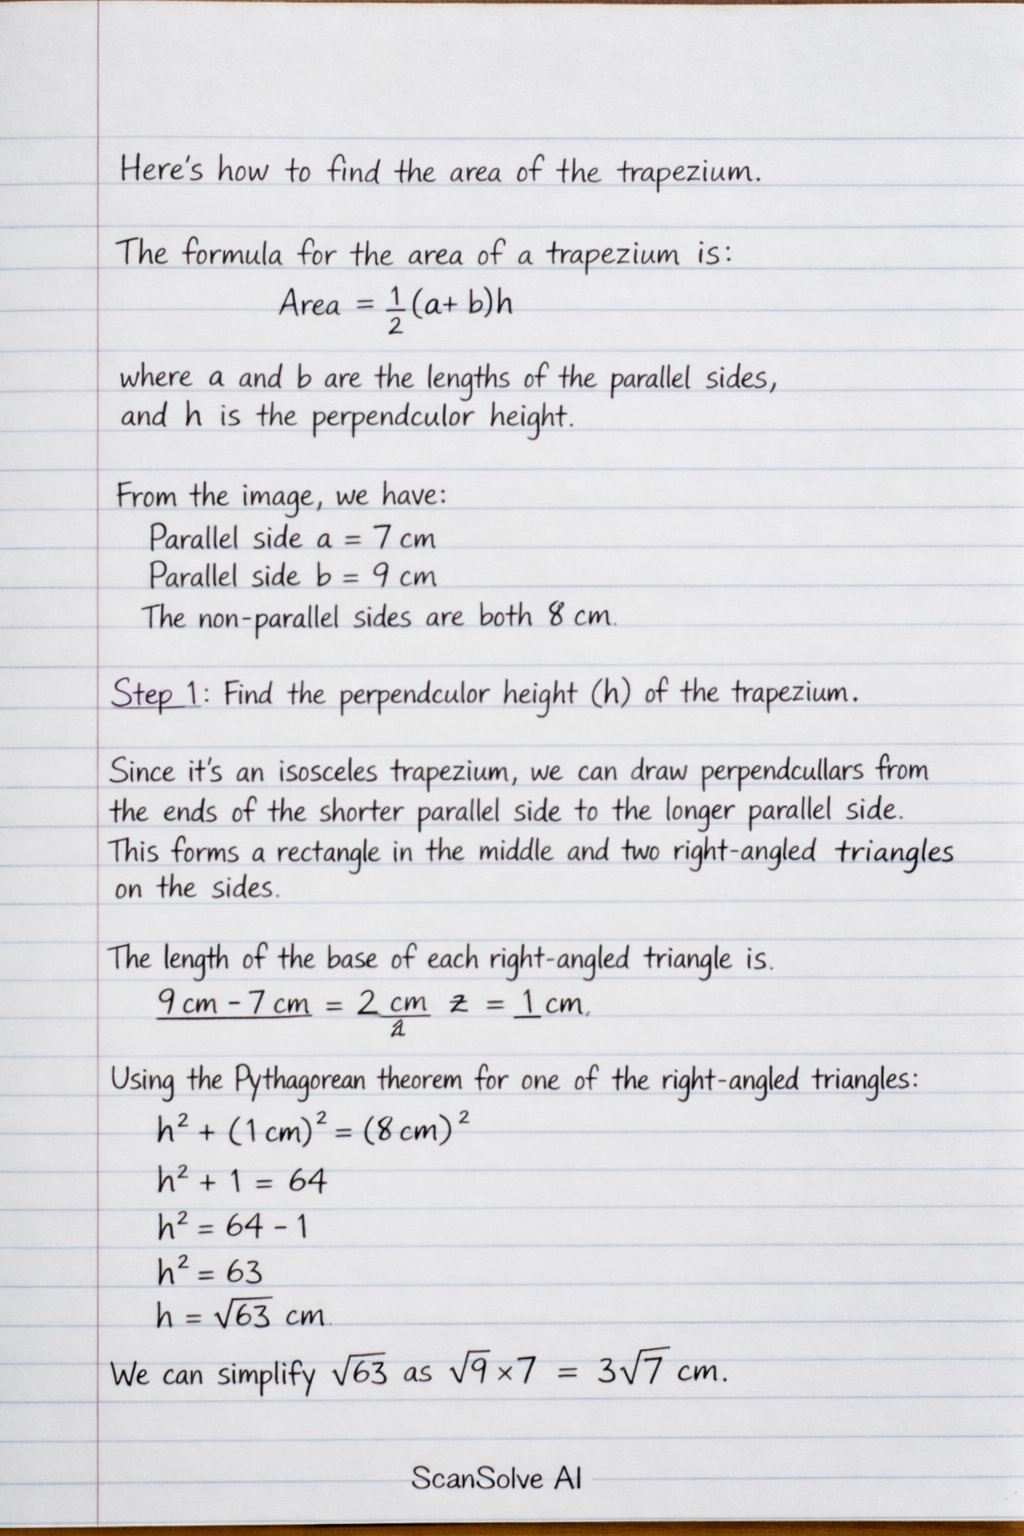 Here's how to find the area of the trapezium.
The formula for the area of a trapezium is:
Area = 1/2 (a+ b)h
where a and b are the lengths of the parallel sides,
and h is the perpendculor height.
From the image, we have:
Parallel side a = 7 cm
Parallel side b = 9 cm
The non-parallel sides are both 8 cm.
Step 1: Find the perpendculor height (h) of the trapezium.
Since it's an isosceles trapezium, we can draw perpendcullars from
the ends of the shorter parallel side to the longer parallel side.
This forms a rectangle in the middle and two right-angled triangles
on the sides.
The length of the base of each right-angled triangle is.
9 cm - 7 cm = 2 cm/2 z = 1 cm.
Using the Pythagorean theorem for one of the right-angled triangles:
h² + (1 cm)² = (8 cm)²
h² + 1 = 64
h² = 64 - 1
h² = 63
h = √63 cm.
We can simplify √63 as √9 × 7 = 3√7 cm.
ScanSolve AI